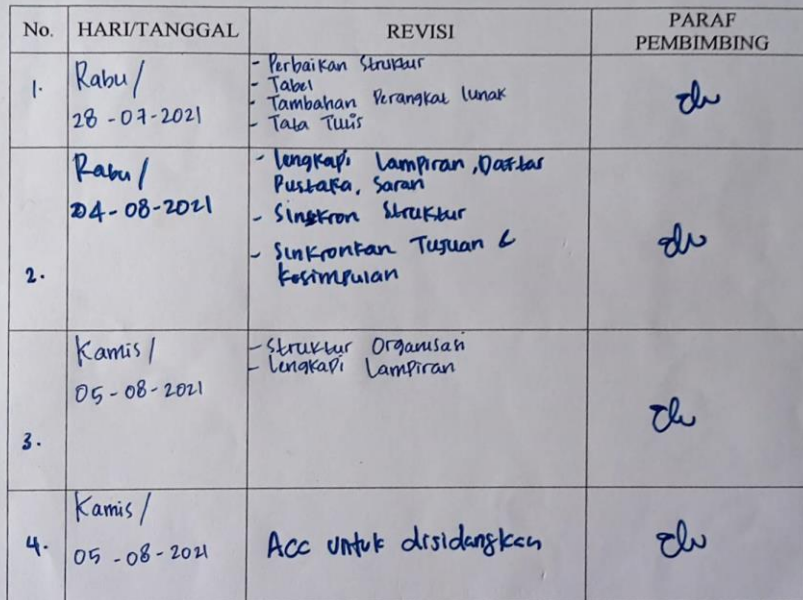 No. HARI/TANGGAL REVISI PARAF PEMBIMBING
1. Rabu/
28-07-2021
- Perbaikan Struktur
- Tabel
- Tambahan Perangkat lunak
- Tata Tulis
2. Rabu/
04-08-2021
- lengkapi Lampiran, Daftar
Pustaka, Saran
- Sinkron Struktur
- Sinkronkan Tujuan &
kesimpulan
3. Kamis/
05-08-2021
- Struktur Organisasi
- Lengkapi Lampiran
4. Kamis/
05-08-2021
Acc untuk disidangkan